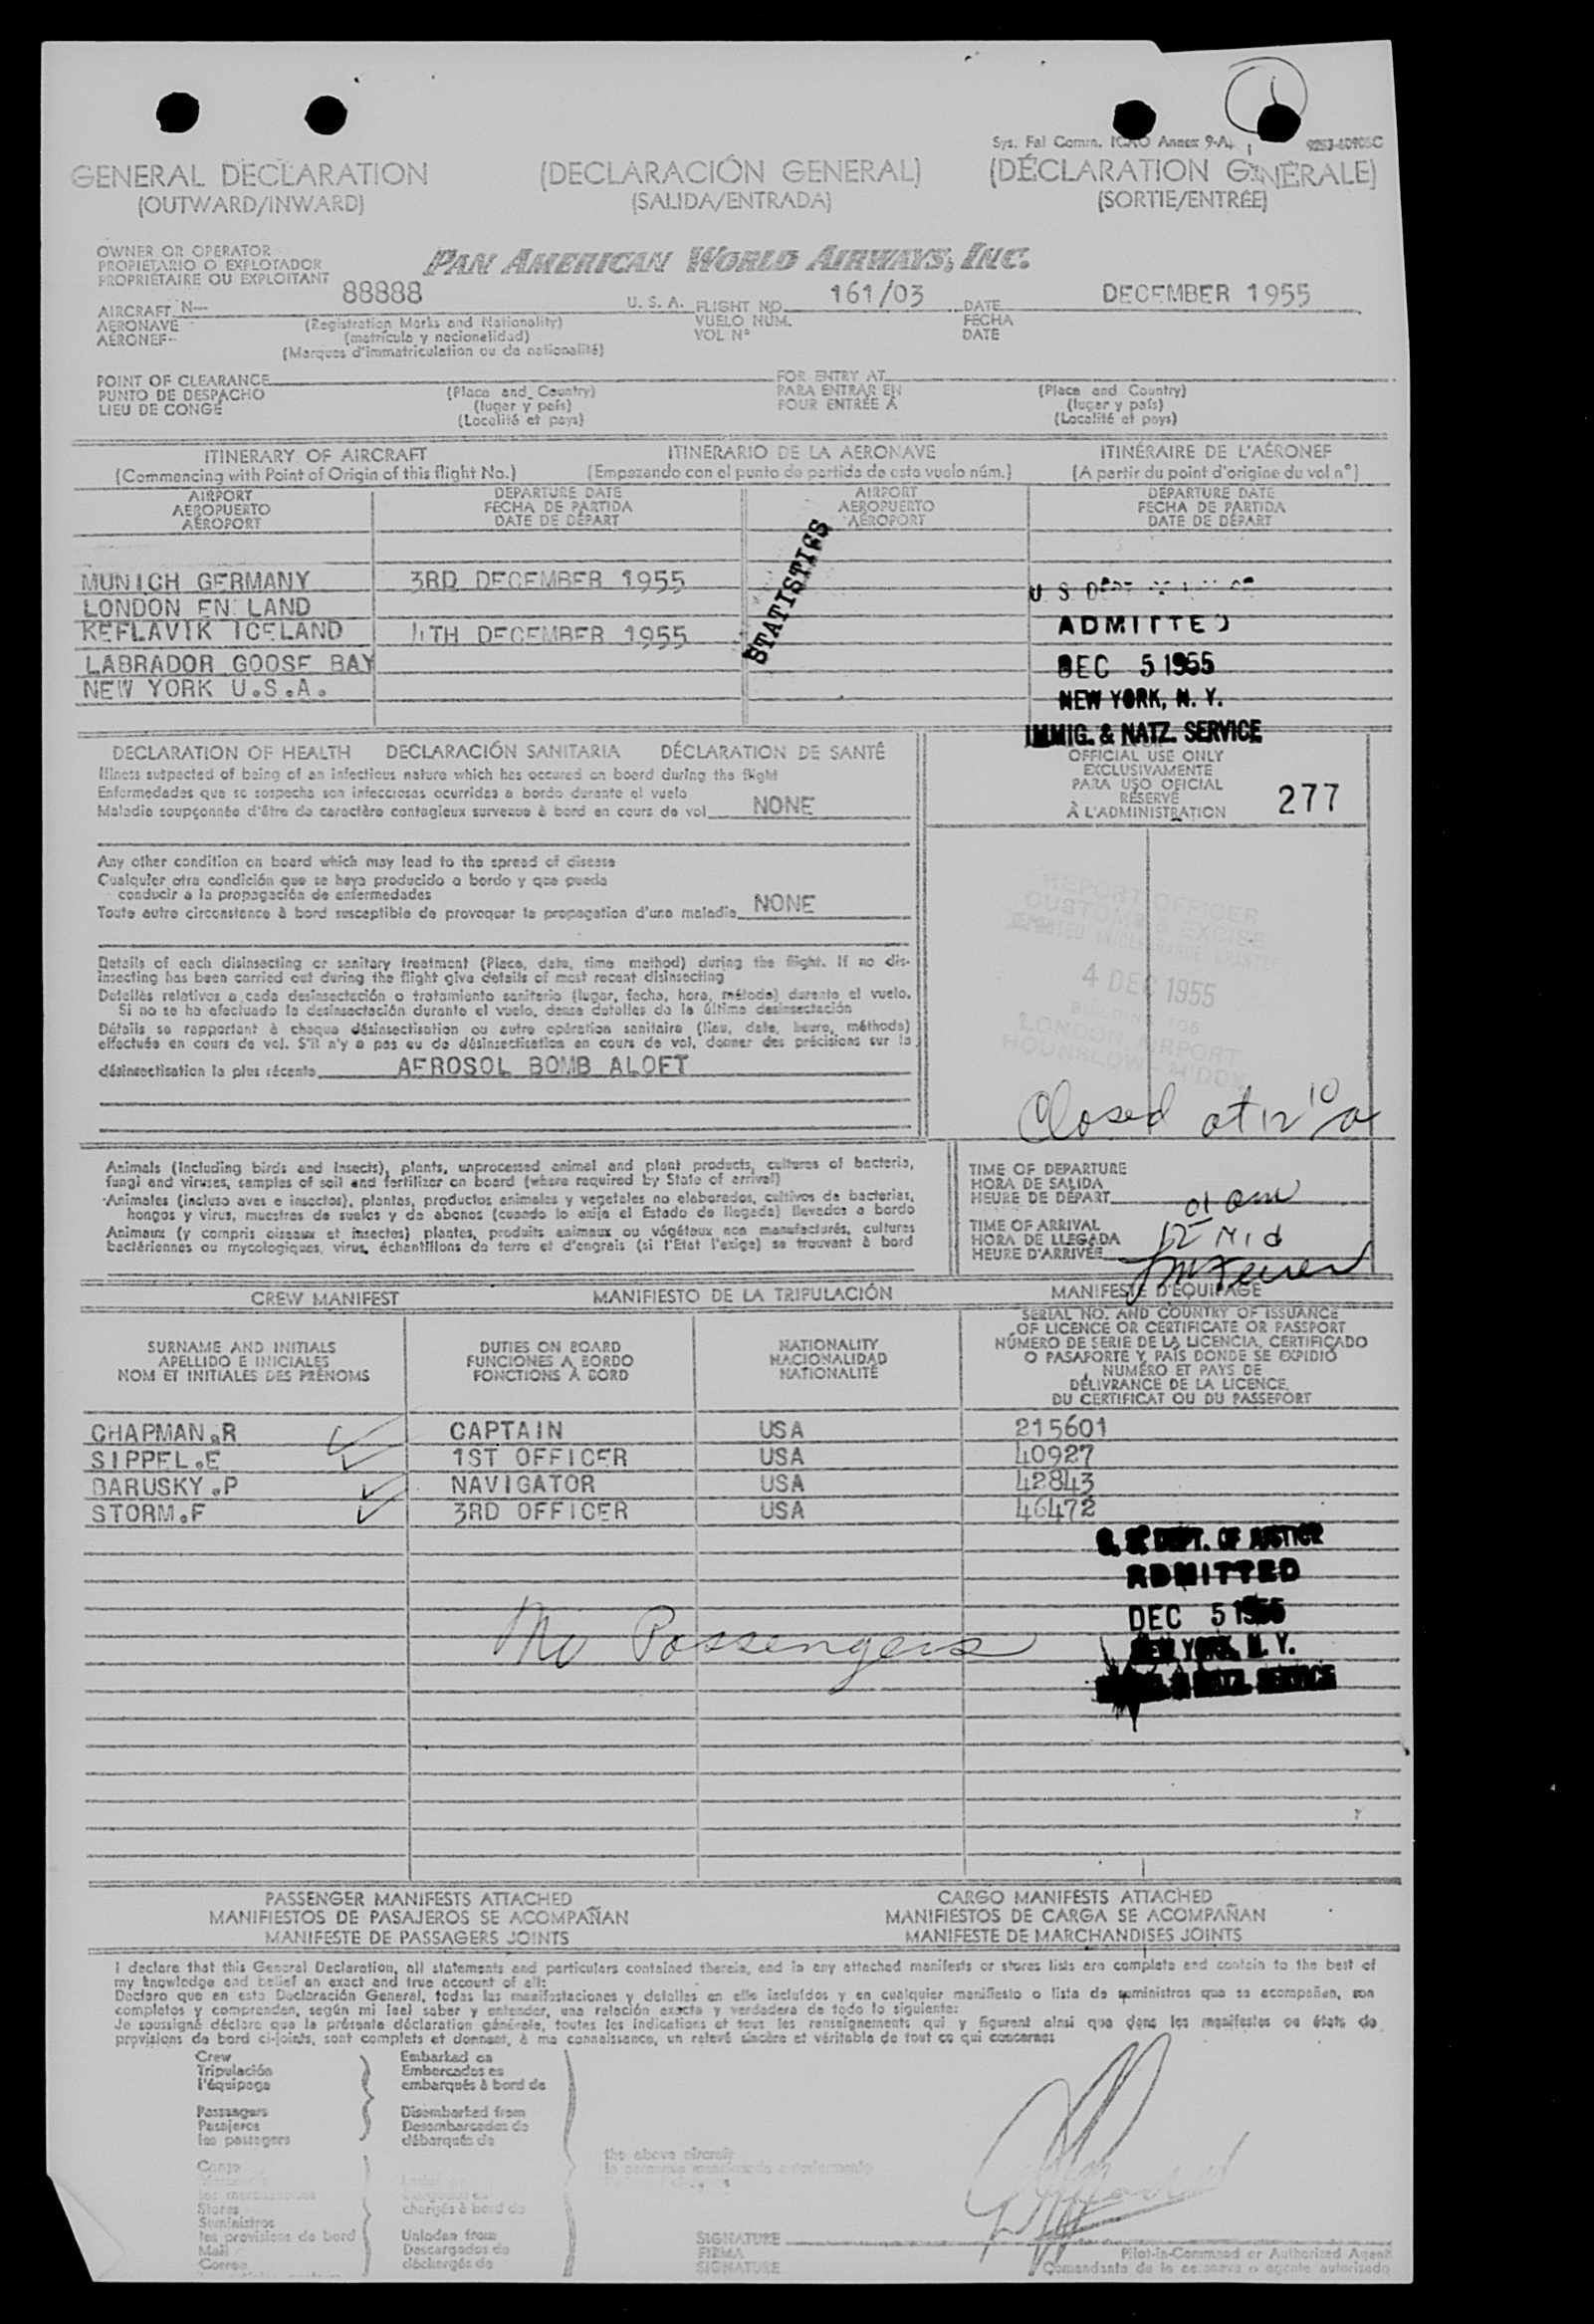 Sys. Fal Comm. ICAO Annex 9-A,
GENERAL DECLARATION (DECLARACIÓN GENERAL) (DÉCLARATION GÉNÉRALE)
(OUTWARD/INWARD) (SALIDA/ENTRADA) (SORTIE/ENTRÉE)
OWNER OR OPERATOR
PROPIETARIO O EXPLOTADOR
PROPRIÉTAIRE OU EXPLOITANT
PAN AMERICAN WORLD AIRWAYS, INC.
AIRCRAFT N— 88888 U. S. A. FLIGHT NO. 161/03 DATE DECEMBER 1955
AERONAVE (Registration Marks and Nationality) VUELO NÚM. FECHA
AÉRONEF (matrícula y nacionalidad) VOL Nº DATE
(Marques d'immatriculation ou de nationalité)
POINT OF CLEARANCE FOR ENTRY AT
PUNTO DE DESPACHO (Place and Country) PARA ENTRAR EN (Place and Country)
LIEU DE CONGÉ (lugar y país) POUR ENTRÉE À (lugar y país)
(Localité et pays) (Localité et pays)
ITINERARY OF AIRCRAFT ITINERARIO DE LA AERONAVE ITINÉRAIRE DE L'AÉRONEF
(Commencing with Point of Origin of this flight No.) (Empezando con el punto de partida de este vuelo núm.) (A partir du point d'origine du vol nº)
AIRPORT DEPARTURE DATE AIRPORT DEPARTURE DATE
AEROPUERTO FECHA DE PARTIDA AEROPUERTO FECHA DE PARTIDA
AÉROPORT DATE DE DÉPART AÉROPORT DATE DE DÉPART
STATISTICS
MUNICH GERMANY 3RD DECEMBER 1955
LONDON EN LAND
KEFLAVIK ICELAND 4TH DECEMBER 1955
LABRADOR GOOSE BAY
NEW YORK U.S.A.
U S
ADMITTED
DEC 5 1955
NEW YORK, N. Y.
IMMIG. & NATZ. SERVICE
DECLARATION OF HEALTH DECLARACIÓN SANITARIA DÉCLARATION DE SANTÉ
Illness suspected of being of an infectious nature which has occured on board during the flight
Enfermedades que se sospecha son infecciosas ocurridas a bordo durante el vuelo
Maladie soupçonnée d'être de caractère contagieux survenue à bord en cours de vol NONE
OFFICIAL USE ONLY
EXCLUSIVAMENTE
PARA USO OFICIAL
RÉSERVÉ
À L'ADMINISTRATION
277
Any other condition on board which may lead to the spread of disease
Cualquier otra condición que se haya producido a bordo y que pueda
conducir a la propagación de enfermedades
Toute autre circonstance à bord susceptible de provoquer la propagation d'une maladie NONE
REPORT OFFICER
CUSTOMS & EXCISE
4 DEC 1955
LONDON AIRPORT
HOUNSLOW MIDDX
Details of each disinsecting or sanitary treatment (Place, date, time method) during the flight. If no dis-
insecting has been carried out during the flight give details of most recent disinsecting
Detalles relativos a cada desinsectación o tratamiento sanitario (lugar, fecha, hora, método) durante el vuelo.
Si no se ha efectuado la desinsectación durante el vuelo, dense detalles de la última desinsectación
Détails se rapportant à chaque désinsectisation ou autre opération sanitaire (lieu, date, heure, méthode)
effectuée en cours de vol. S'il n'y a pas eu de désinsectisation en cours de vol, donner des précisions sur la
désinsectisation la plus récente AEROSOL BOMB ALOFT
Closed at 12 10 a
Animals (including birds and insects), plants, unprocessed animal and plant products, cultures of bacteria,
fungi and viruses, samples of soil and fertilizer on board (where required by State of arrival)
Animales (incluso aves e insectos), plantas, productos animales y vegetales no elaborados, cultivos de bacterias,
hongos y virus, muestras de suelos y de abonos (cuando lo exija el Estado de llegada) llevados a bordo
Animaux (y compris oiseaux et insectes) plantes, produits animaux ou végétaux non manufacturés, cultures
bactériennes ou mycologiques, virus, échantillons de terre et d'engrais (si l'Etat l'exige) se trouvant à bord
TIME OF DEPARTURE
HORA DE SALIDA
HEURE DE DÉPART am
TIME OF ARRIVAL
HORA DE LLEGADA 12 Mid
HEURE D'ARRIVÉE
CREW MANIFEST MANIFIESTO DE LA TRIPULACIÓN MANIFESTE D'ÉQUIPAGE
SURNAME AND INITIALS
APELLIDO E INICIALES
NOM ET INITIALES DES PRÉNOMS
DUTIES ON BOARD
FUNCIONES A BORDO
FONCTIONS À BORD
NATIONALITY
NACIONALIDAD
NATIONALITÉ
SERIAL NO. AND COUNTRY OF ISSUANCE
OF LICENCE OR CERTIFICATE OR PASSPORT
NÚMERO DE SERIE DE LA LICENCIA, CERTIFICADO
O PASAPORTE Y PAÍS DONDE SE EXPIDIÓ
NUMÉRO ET PAYS DE
DÉLIVRANCE DE LA LICENCE,
DU CERTIFICAT OU DU PASSEPORT
CHAPMAN.R CAPTAIN USA 215601
SIPPEL.E 1ST OFFICER USA 40927
BARUSKY.P NAVIGATOR USA 42843
STORM.F 3RD OFFICER USA 46472
DEPT. OF JUSTICE
ADMITTED
DEC 5 1955
NEW YORK, N. Y.
NATZ. SERVICE
No Passengers
PASSENGER MANIFESTS ATTACHED CARGO MANIFESTS ATTACHED
MANIFIESTOS DE PASAJEROS SE ACOMPAÑAN MANIFIESTOS DE CARGA SE ACOMPAÑAN
MANIFESTE DE PASSAGERS JOINTS MANIFESTE DE MARCHANDISES JOINTS
I declare that this General Declaration, all statements and particulars contained therein, and in any attached manifests or stores lists are complete and contain to the best of
my knowledge and belief an exact and true account of all:
Declaro que en esta Declaración General, todas las manifestaciones y detalles en ella incluídos y en cualquier manifiesto o lista de suministros que se acompañen, son
completos y comprenden, según mi leal saber y entender, una relación exacta y verdadera de todo lo siguiente:
Je soussigné déclare que la présente déclaration générale, toutes les indications et tous les renseignements qui y figurent ainsi que dans les manifestes ou états de
provisions de bord ci-joints, sont complets et donnent, à ma connaissance, un relevé sincère et véritable de tout ce qui concerne:
Crew Embarked on
Tripulación Embarcados en
l'équipage embarqués à bord de
Passengers Disembarked from
Pasajeros Desembarcados de
les passagers débarqués de
the above aircraft
Cargo
Stores chargés à bord de
Suministros
les provisions de bord Unladen from
Mail Descargados de
Correo déchargés de
SIGNATURE
FIRMA Pilot-in-Command or Authorized Agent
SIGNATURE Comandante de la aeronave o agente autorizado